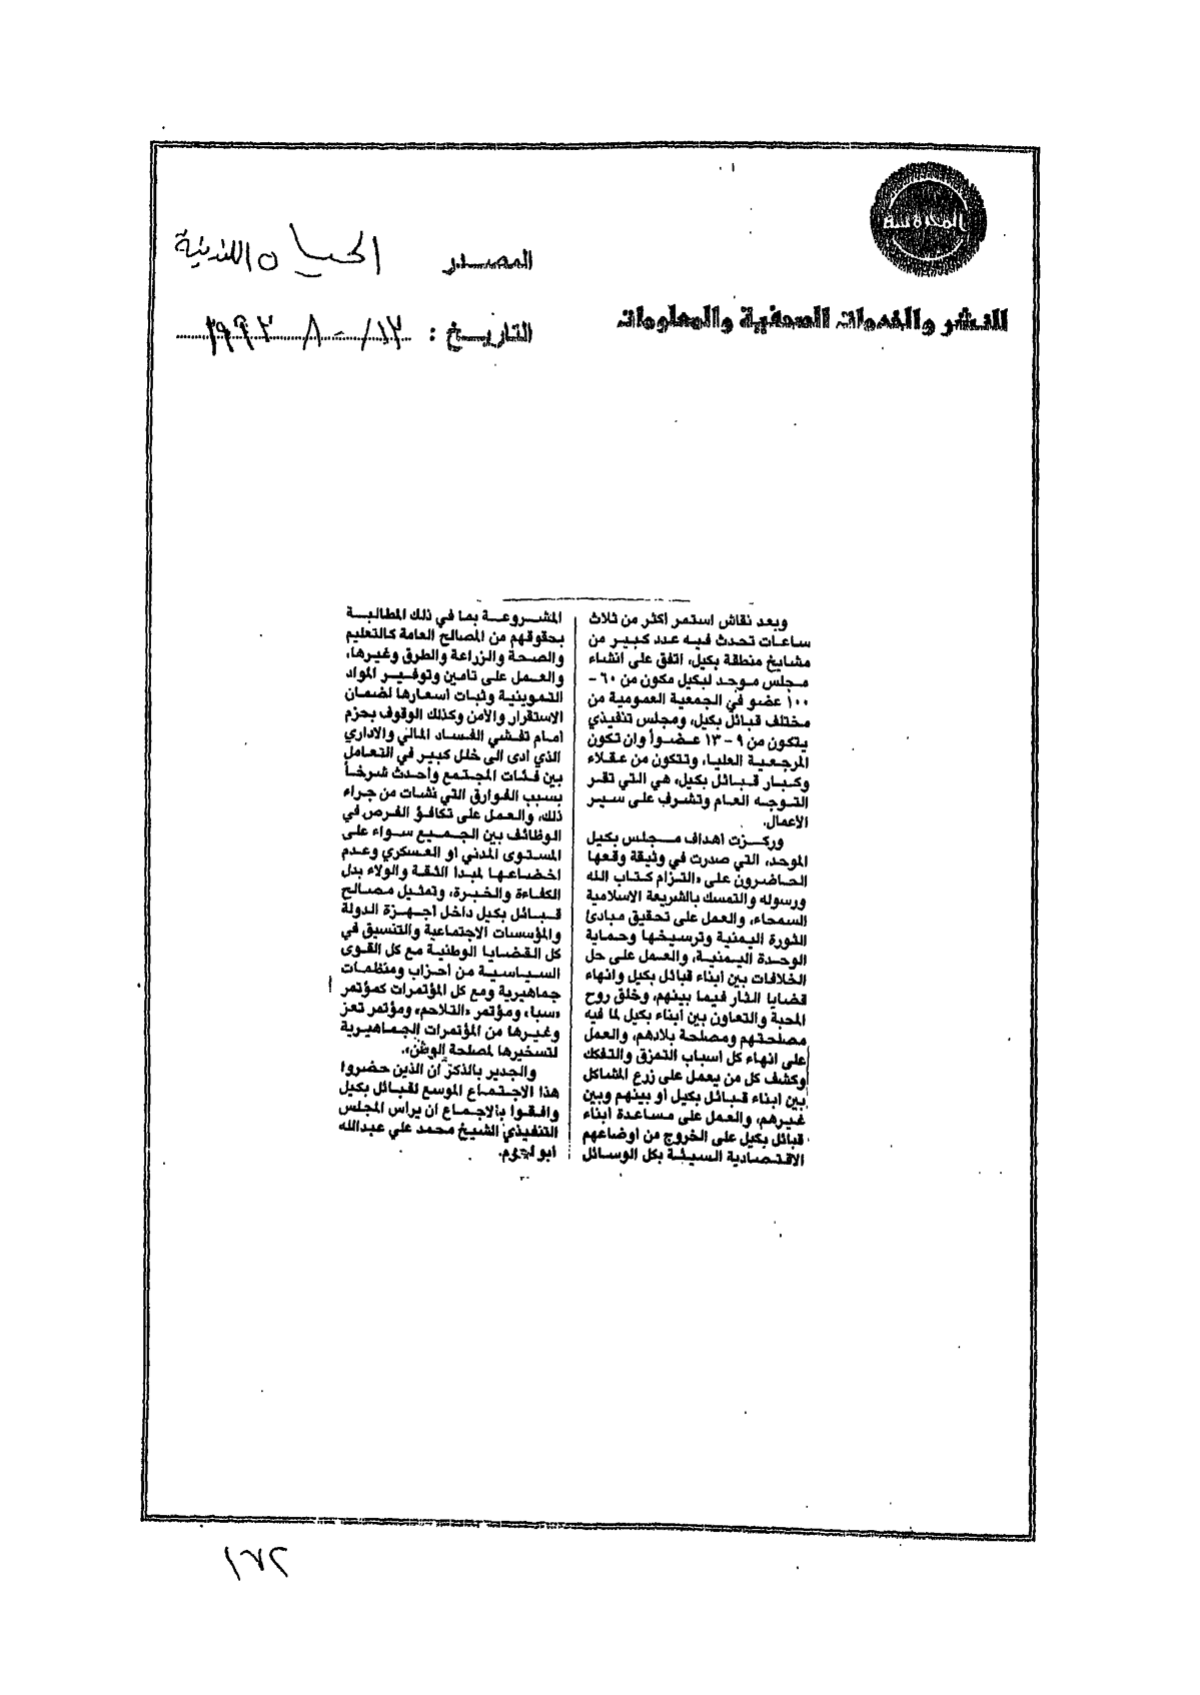 المحروسة
للنشر والخدمات الصحفية والمعلومات
المصدر الحياة اللندنية
التاريخ : ١٢/ ٨ - ١٩٩٢
وبعد نقاش استمر أكثر من ثلاث
ساعات تحدث فيه عدد كبير من
مشايخ منطقة بكيل، اتفق على انشاء
مجلس موحد لبكيل مكون من ٦٠ -
١٠٠ عضو في الجمعية العمومية من
مختلف قبائل بكيل، ومجلس تنفيذي
يتكون من ٩ - ١٣ عضواً وان تكون
المرجعية العليا، وتتكون من عقلاء
وكبار قبائل بكيل، هي التي تقر
التوجه العام وتشرف على سير
الاعمال.
وركزت أهداف مجلس بكيل
الموحد، التي صدرت في وثيقة وقعها
الحاضرون على «التزام كتاب الله
ورسوله والتمسك بالشريعة الاسلامية
السمحاء، والعمل على تحقيق مبادئ
الثورة اليمنية وترسيخها وحماية
الوحدة اليمنية، والعمل على حل
الخلافات بين أبناء قبائل بكيل وانهاء
قضايا الثار فيما بينهم، وخلق روح
المحبة والتعاون بين أبناء بكيل لما فيه
مصلحتهم ومصلحة بلادهم، والعمل
على انهاء كل اسباب التمزق والتفكك
وكشف كل من يعمل على زرع المشاكل
بين ابناء قبائل بكيل أو بينهم وبين
غيرهم، والعمل على مساعدة ابناء
قبائل بكيل على الخروج من أوضاعهم
الاقتصادية السيئة بكل الوسائل
المشروعة بما في ذلك المطالبة
بحقوقهم من المصالح العامة كالتعليم
والصحة والزراعة والطرق وغيرها،
والعمل على تامين وتوفير المواد
التموينية وثبات أسعارها لضمان
الاستقرار والأمن وكذلك الوقوف بحزم
امام تفشي الفساد المالي والاداري
الذي ادى الى خلل كبير في التعامل
بين فئات المجتمع واحدث شرخاً
بسبب الفوارق التي نشات من جراء
ذلك، والعمل على تكافؤ الفرص في
الوظائف بين الجميع سواء على
المستوى المدني أو العسكري وعدم
اخضاعها لمبدا الثقة والولاء بدل
الكفاءة والخبرة، وتمثيل مصالح
قبائل بكيل داخل أجهزة الدولة
والمؤسسات الاجتماعية والتنسيق في
كل القضايا الوطنية مع كل القوى
السياسية من أحزاب ومنظمات
جماهيرية ومع كل المؤتمرات كمؤتمر
«سبا» ومؤتمر «التلاحم» ومؤتمر تعز
وغيرها من المؤتمرات الجماهيرية
لتسخيرها لمصلحة الوطن».
والجدير بالذكر أن الذين حضروا
هذا الاجتماع الموسع لقبائل بكيل
وافقوا بالاجماع ان يراس المجلس
التنفيذي الشيخ محمد علي عبدالله
أبو لحوم.
١٧٢